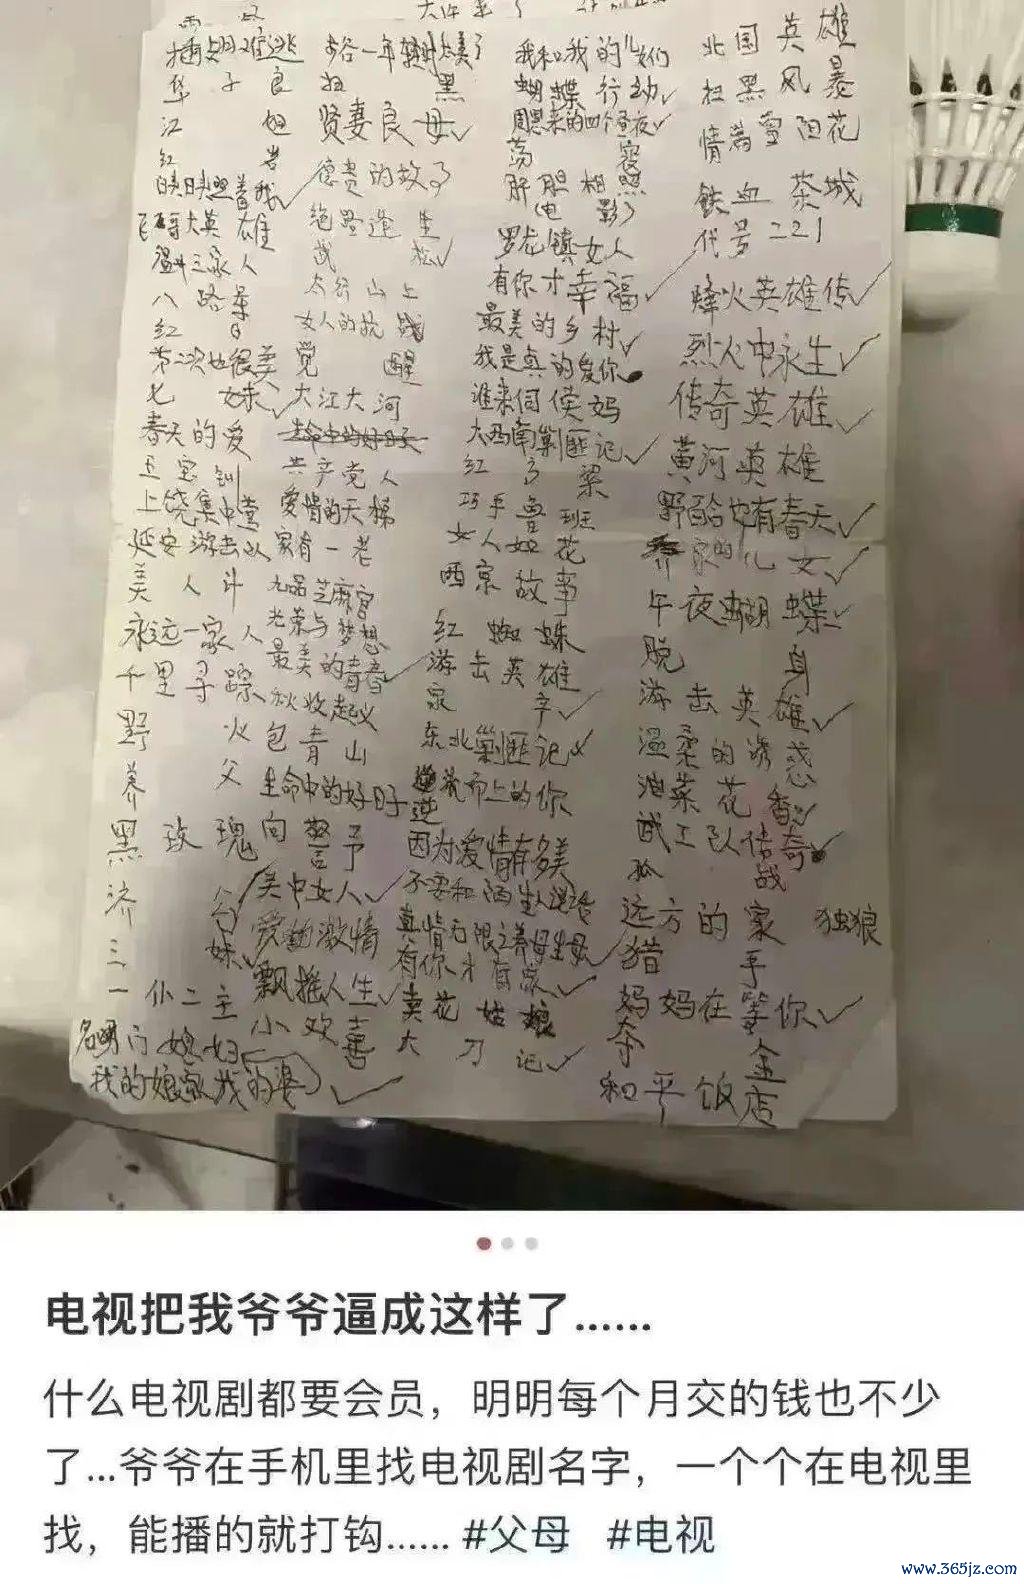 华子良
江姐
红岩
映日映照着我
温州三家人
八路军
红日
第二次也很美
七妹
春天的爱
王宝钏
上饶集中营
延安游击队
美人计
永远一家人
千里寻踪
野火
养父
黑玫瑰
济公
三妹
一仆二主
名门媳妇
我的娘家我的婆
扫黑
贤妻良母
德贵的故事
绝路逢生
太行山上
女人的抗战
觉醒
大江大河
共产党人
爱情的天梯
家有一老
九品芝麻官
光荣与梦想
最美的青春
秋收起义
包青山
生命中的好日子
向警予
美中女人
爱的激情
飘摇人生
小欢喜
我和我的儿女们
蝴蝶行动
周恩来的四个昼夜
荡寇
肝胆相照
(电影)
罗龙镇女人
有你才幸福
最美的乡村
我是真的爱你
谁来伺候妈
大西南剿匪记
红高粱
巧手鲁班
女人如花
西京故事
红蜘蛛
游击英雄
家宴
东北剿匪记
逆流而上的你
因为爱情有多美
不要和陌生人说话
真情无限之养母生母
有你才有家
卖花姑娘
大刀记
北国英雄
扫黑风暴
情满雪阳花
铁血茶城
代号221
烽火英雄传
烈火中永生
传奇英雄
黄河英雄
野百合也有春天
乔家的儿女
午夜蝴蝶
脱身
游击英雄
温柔的诱惑
油菜花香
武工队传奇
孤战
远方的家 独狼
猎手
妈妈在等你
夺金
和平饭店
电视把我爷爷逼成这样了......
什么电视剧都要会员，明明每个月交的钱也不少
了...爷爷在手机里找电视剧名字，一个个在电视里
找，能播的就打钩...... #父母 #电视
www.365jz.com